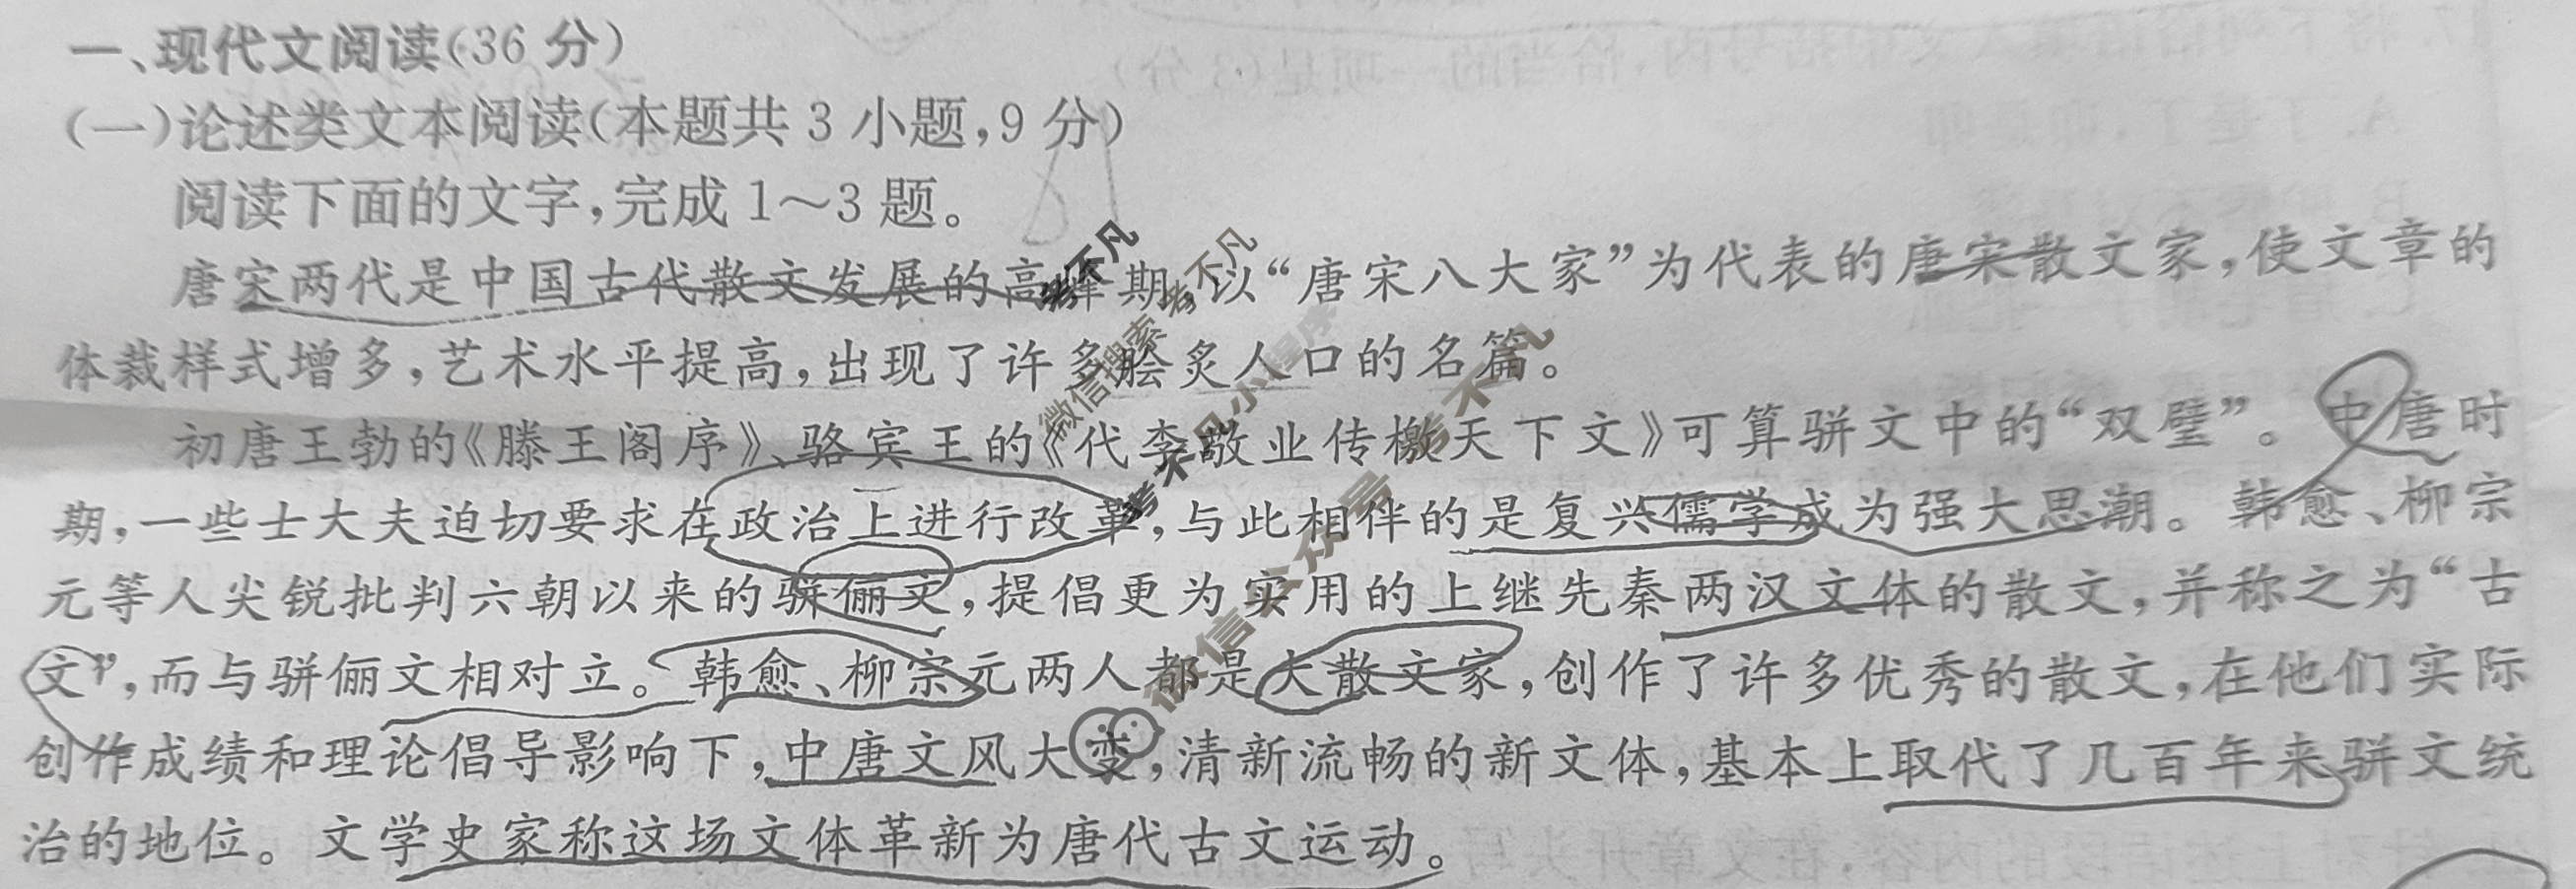 一、现代文阅读(36 分)
(一)论述类文本阅读(本题共 3 小题,9 分)
阅读下面的文字,完成 1～3 题。
唐宋两代是中国古代散文发展的高峰期,以“唐宋八大家”为代表的唐宋散文家,使文章的
体裁样式增多,艺术水平提高,出现了许多脍炙人口的名篇。
初唐王勃的《滕王阁序》、骆宾王的《代李敬业传檄天下文》可算骈文中的“双璧”。中唐时
期,一些士大夫迫切要求在政治上进行改革,与此相伴的是复兴儒学成为强大思潮。韩愈、柳宗
元等人尖锐批判六朝以来的骈俪文,提倡更为实用的上继先秦两汉文体的散文,并称之为“古
文”,而与骈俪文相对立。韩愈、柳宗元两人都是大散文家,创作了许多优秀的散文,在他们实际
创作成绩和理论倡导影响下,中唐文风大变,清新流畅的新文体,基本上取代了几百年来骈文统
治的地位。文学史家称这场文体革新为唐代古文运动。
考不凡
考不凡
微信搜索
考不凡小程序
微信公众号 考不凡